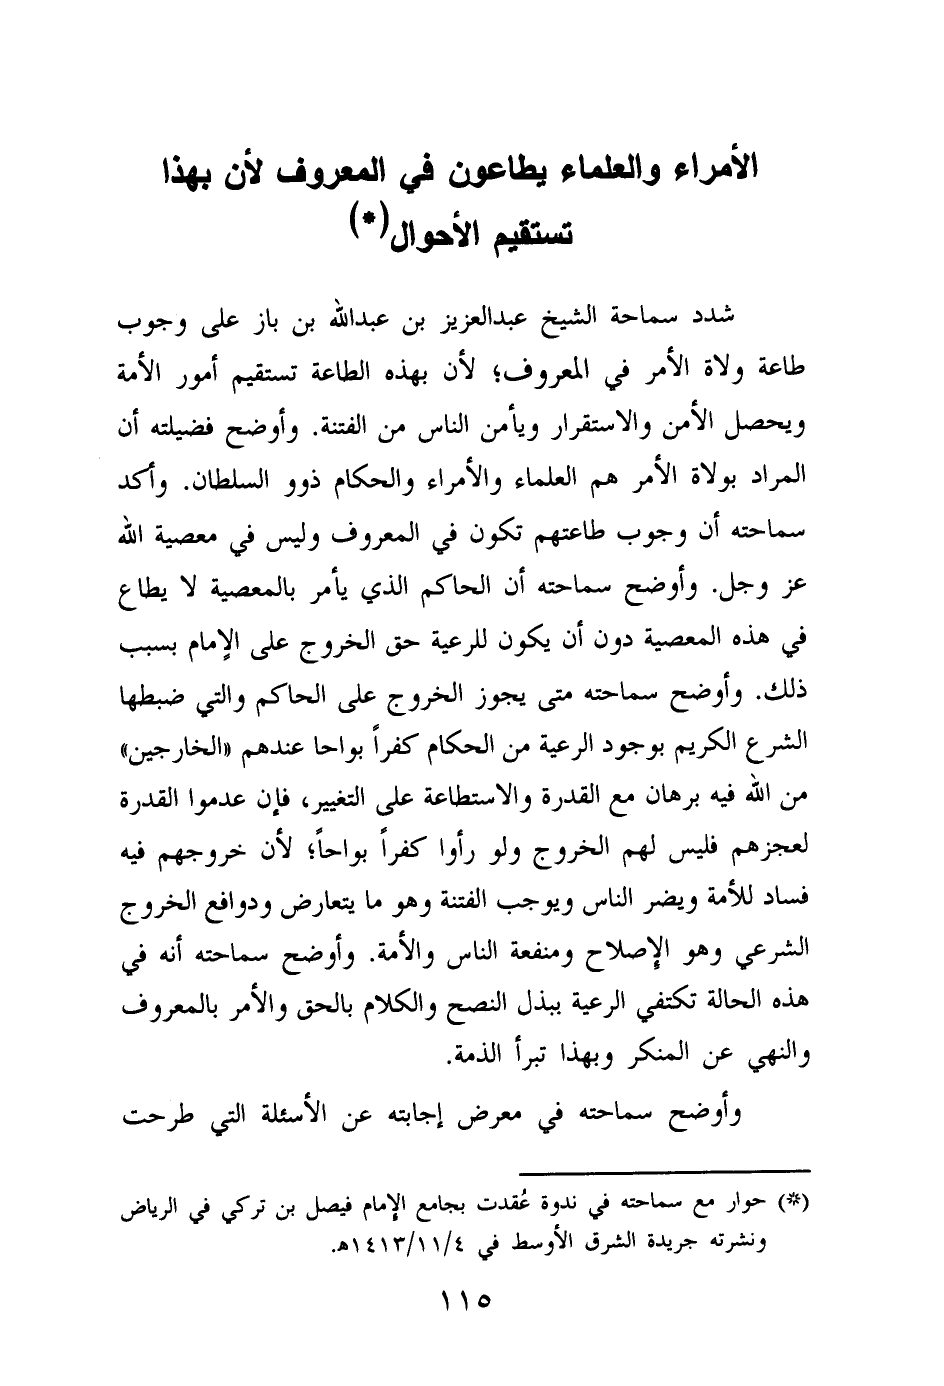 الأمراء والعلماء يطاعون في المعروف لأن بهذا
تستقيم الأحوال(*)
شدد سماحة الشيخ عبدالعزيز بن عبدالله بن باز على وجوب
طاعة ولاة الأمر في المعروف؛ لأن بهذه الطاعة تستقيم أمور الأمة
ويحصل الأمن والاستقرار ويأمن الناس من الفتنة. وأوضح فضيلته أن
المراد بولاة الأمر هم العلماء والأمراء والحكام ذوو السلطان. وأكد
سماحته أن وجوب طاعتهم تكون في المعروف وليس في معصية الله
عز وجل. وأوضح سماحته أن الحاكم الذي يأمر بالمعصية لا يطاع
في هذه المعصية دون أن يكون للرعية حق الخروج على الإمام بسبب
ذلك. وأوضح سماحته متى يجوز الخروج على الحاكم والتي ضبطها
الشرع الكريم بوجود الرعية من الحكام كفراً بواحا عندهم «الخارجين»
من الله فيه برهان مع القدرة والاستطاعة على التغيير، فإن عدموا القدرة
لعجزهم فليس لهم الخروج ولو رأوا كفراً بواحاً؛ لأن خروجهم فيه
فساد للأمة ويضر الناس ويوجب الفتنة وهو ما يتعارض ودوافع الخروج
الشرعي وهو الإصلاح ومنفعة الناس والأمة. وأوضح سماحته أنه في
هذه الحالة تكتفي الرعية ببذل النصح والكلام بالحق والأمر بالمعروف
والنهي عن المنكر وبهذا تبرأ الذمة.
وأوضح سماحته في معرض إجابته عن الأسئلة التي طرحت
(*) حوار مع سماحته في ندوة عُقدت بجامع الإمام فيصل بن تركي في الرياض
ونشرته جريدة الشرق الأوسط في ١٤١٣/١١/٤هـ.
١١٥